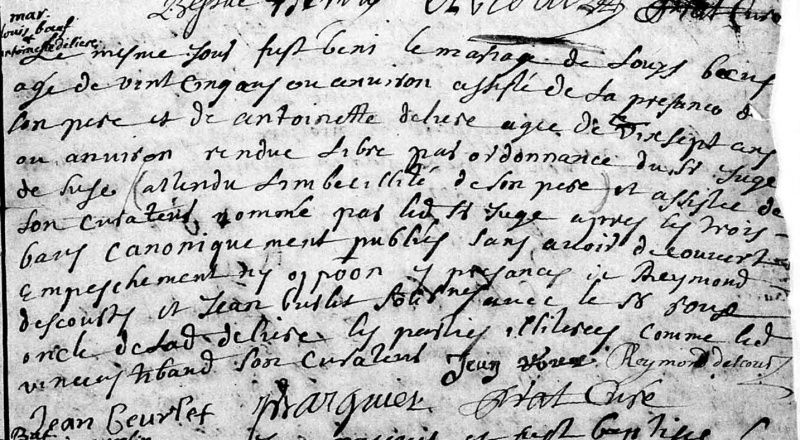 mar.
louis bœuf
et
antoinette deliere.
Le mesme jour fust beni le mariage de Louys bœuf
agé de vint cinq ans ou anviron assisté de la presence de
son pere et de antoinette deliere agee de dix sept ans
ou anviron rendue libre par ordonnance du Sr Juge
de (attandu Limbecillité de son pere) et assistee de
son curateur nommé par led Sr Juge apres les trois
bans canoniquement publiés sans avoir decouvert
empeschement ny oppoon es presances de Reymond
descousts et Jean burlet avec le Sr
oncle de lad deliere les parties illiterees comme led
vincens riband son curateur Jean Reymond descous
Jean Beurlet Marquier Prat Curé
Bat.
et fust baptisé